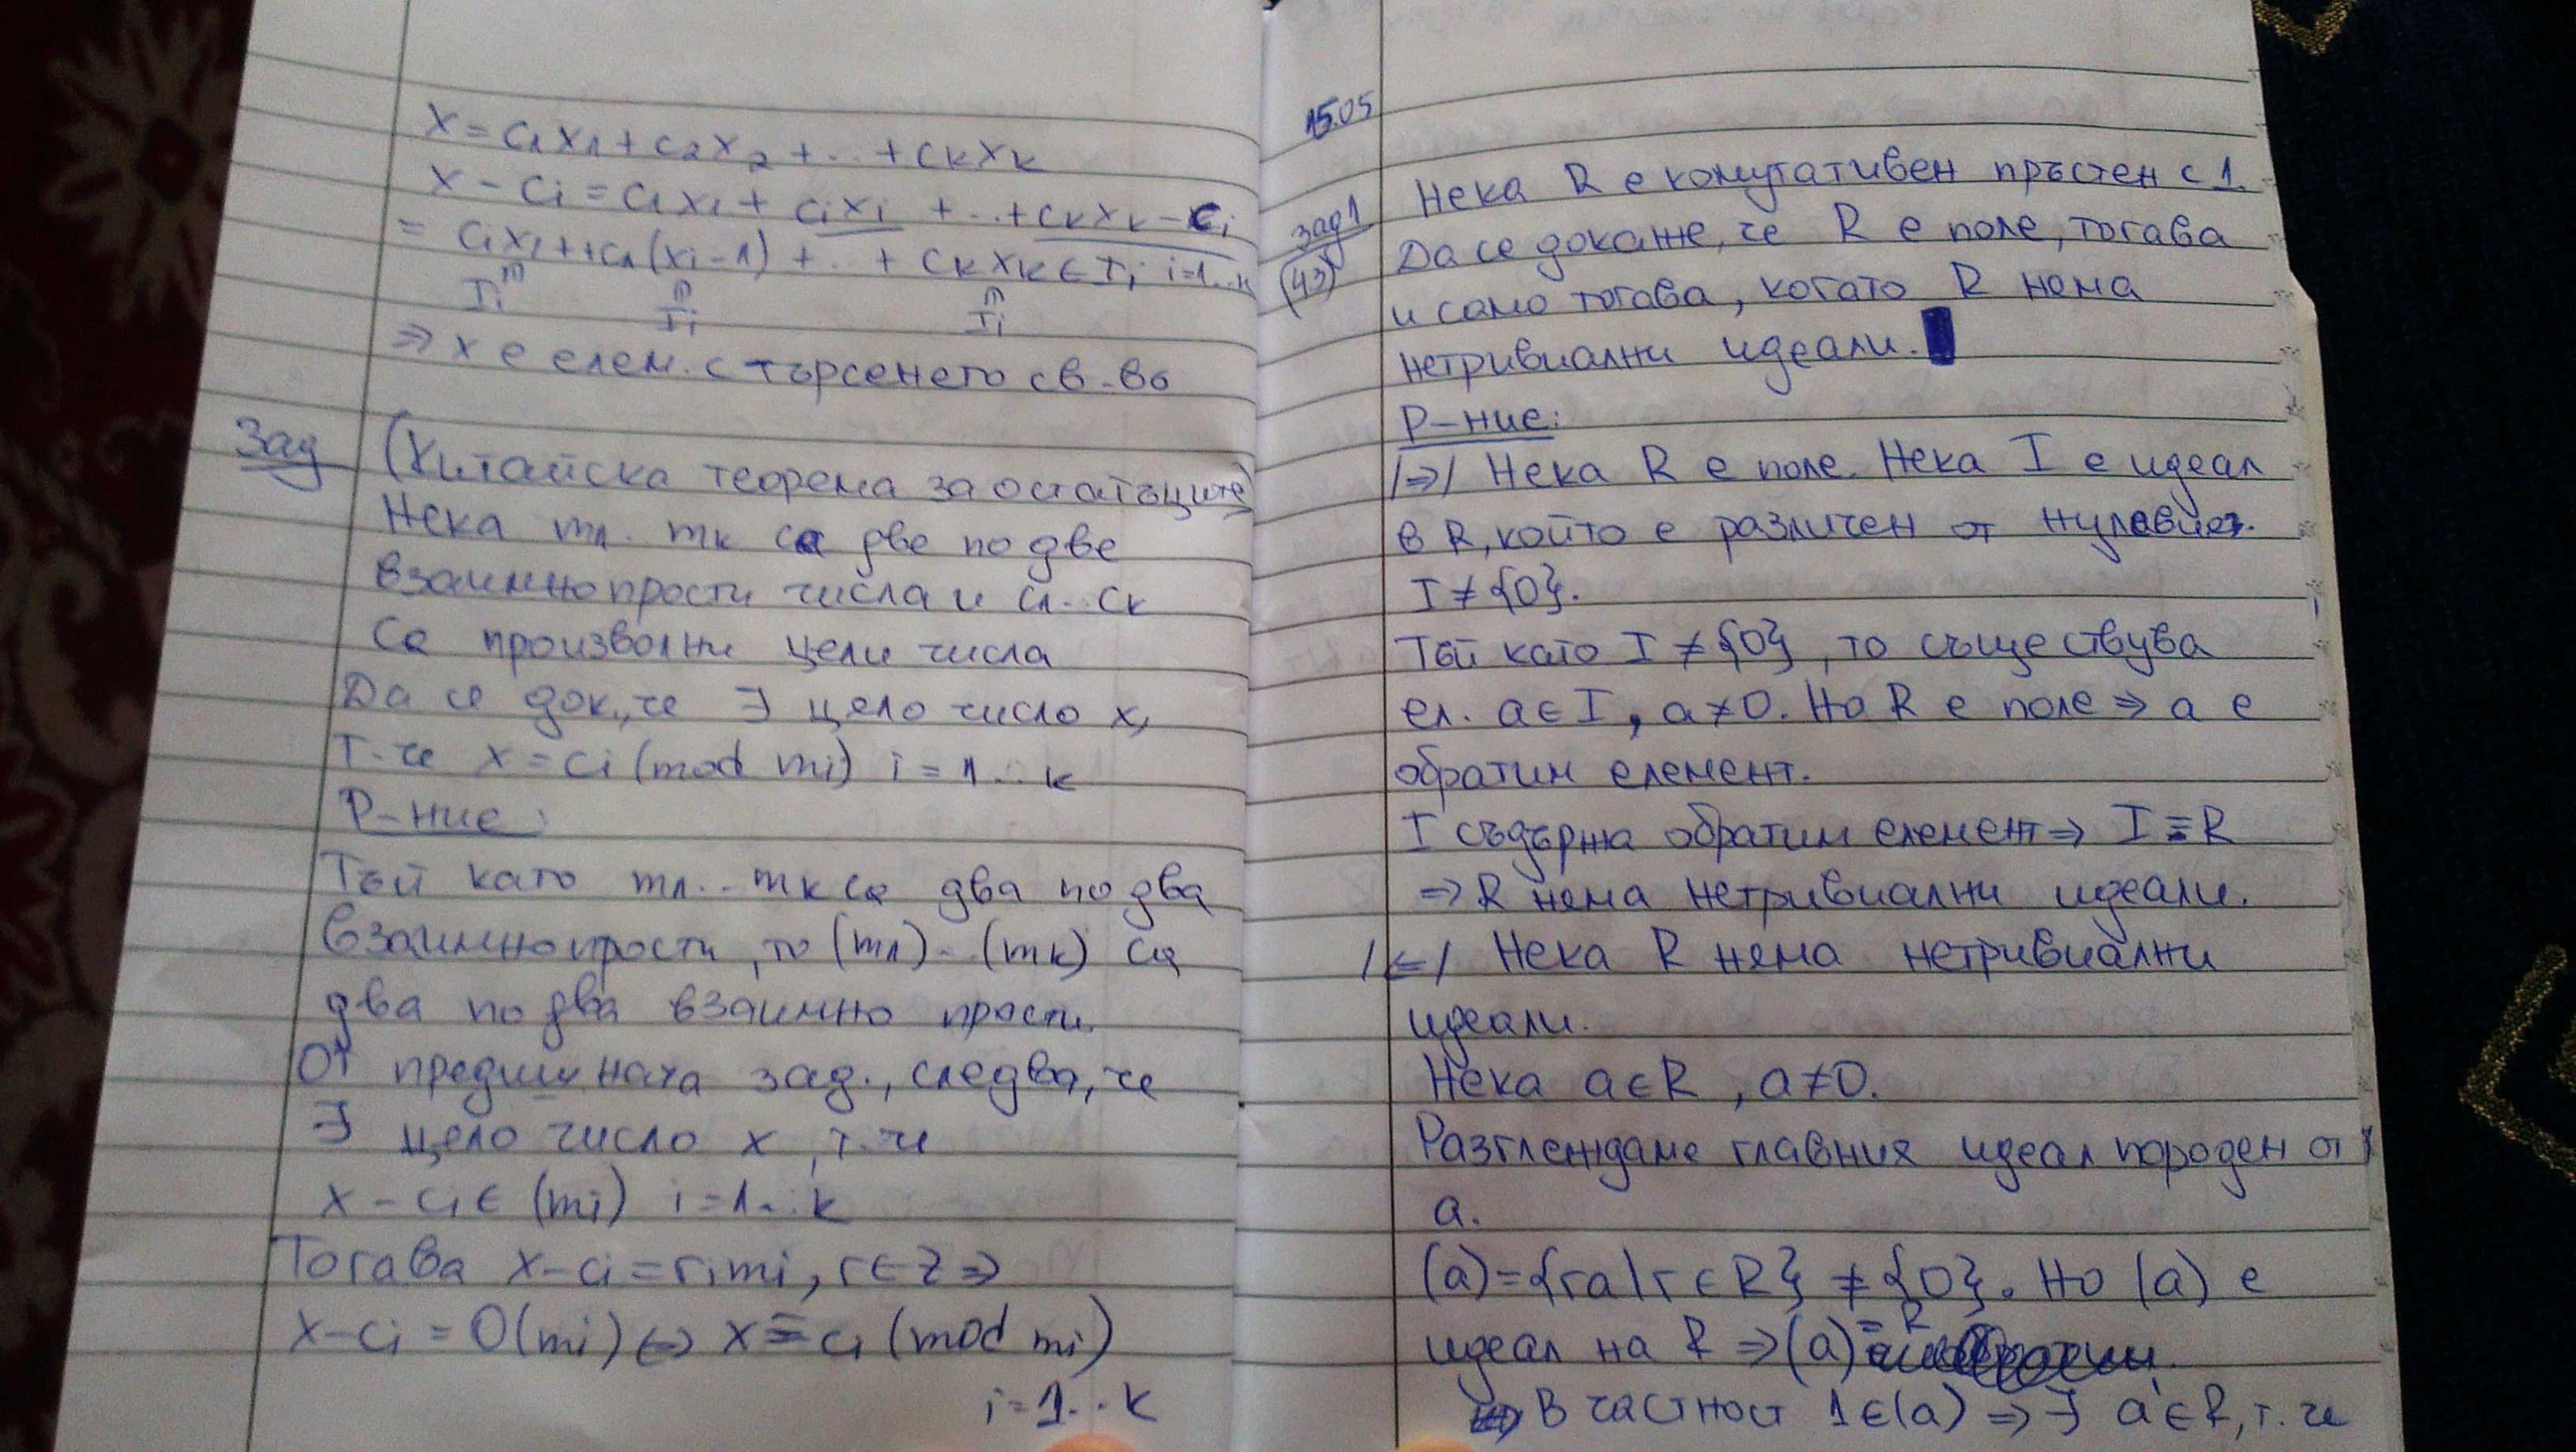 x = c₁x₁ + c₂x₂ + ... + cₖxₖ
x - cᵢ = c₁x₁ + cᵢxᵢ + ... + cₖxₖ - cᵢ
= c₁x₁ + + cᵢ(xᵢ - 1) + ... + cₖxₖ ∈ Iᵢ i = 1..k
Iᵢ Iᵢ Iᵢ
⇒ x е елем. с търсенето св-во
Зад (Китайска теорема за остатъците)
Нека m₁.. mₖ са две по две
взаимнопрости числа и c₁..cₖ
са произволни цели числа
Да се док., че ∃ цело число x,
т.че x = cᵢ (mod mᵢ) i = 1..k
Р-ние:
Тъй като m₁..mₖ са два по два
взаимнопрости, то (m₁).. (mₖ) са
два по два взаимно прости.
От предишната зад., следва, че
∃ цело число x, т.че
x - cᵢ ∈ (mᵢ) i = 1..k
Тогава x - cᵢ = rᵢmᵢ, r ∈ Z ⇒
x - cᵢ = 0(mᵢ) ⇔ x ≡ cᵢ (mod mᵢ)
i = 1..k
15.05
зад 1 Нека R е комутативен пръстен с 1.
(43) Да се докаже, че R е поле, тогава
и само тогава, когато R няма
нетривиални идеали.
Р-ние:
/⇒/ Нека R е поле. Нека I е идеал
в R, който е различен от нулевият.
I ≠ {0}.
Тъй като I ≠ {0}, то съществува
ел. a ∈ I, a ≠ 0. Но R е поле ⇒ a е
обратим елемент.
I съдържа обратим елемент ⇒ I ≡ R
⇒ R няма нетривиални идеали.
/⇐/ Нека R няма нетривиални
идеали.
Нека a ∈ R, a ≠ 0.
Разглеждаме главния идеал породен от
a.
(a) = {ra | r ∈ R} ≠ {0}. Но (a) е
идеал на R ⇒ (a) = R
⇒ В частност 1 ∈ (a) ⇒ ∃ a' ∈ R, т.че